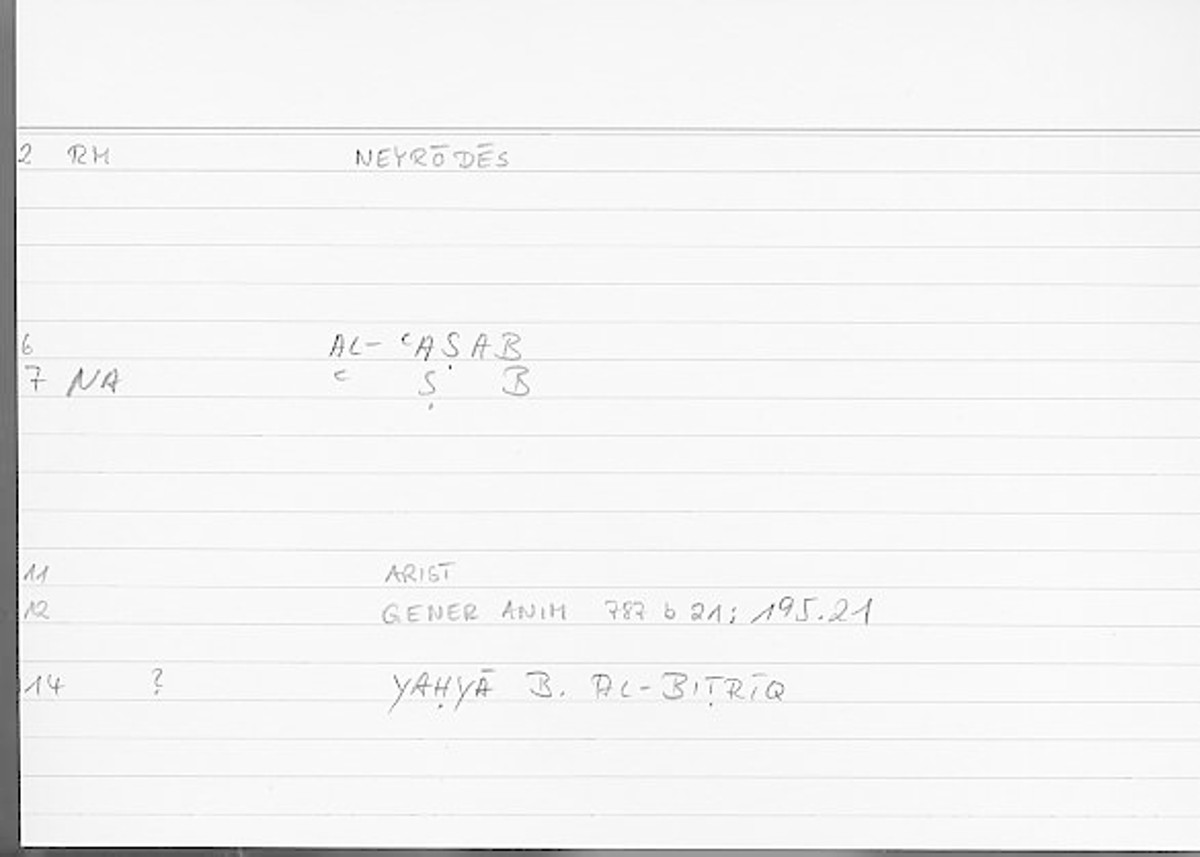 2 RM NEYRŌDĒS
6 AL- ʿAṢAB
7 NA ʿ Ṣ B
11 ARIST
12 GENER ANIM 787 b 21; 195.21
14 ? YAḤYĀ B. AL-BIṬRĪQ